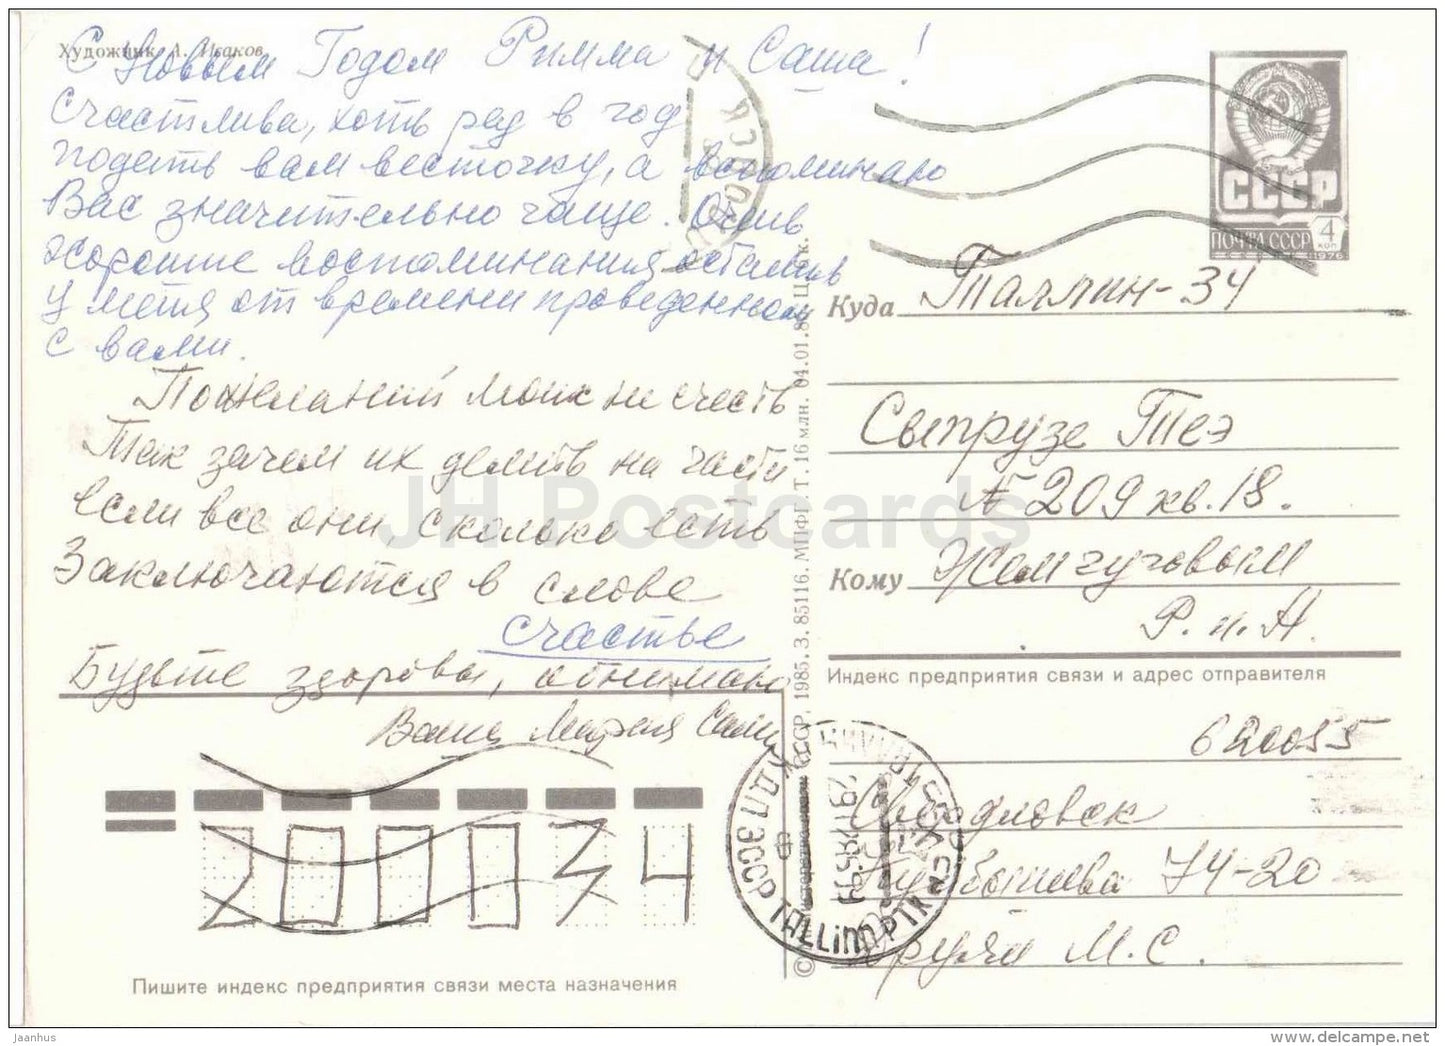 Художник А. Исаков
С Новым Годом Римма и Саша!
Счастлива, хоть раз в год
подать вам весточку, а вспоминаю
Вас значительно чаще. Очень
хорошие воспоминания остались
у меня от времени проведенного
с вами.
Пожеланий моих не счесть
Так зачем их делить на части
если все они, сколько есть
Заключаются в слове
счастье
Будьте здоровы, обнимаю
Ваша Мария
200034
Пишите индекс предприятия связи места назначения
© Министерство связи СССР, 1985. З. 85116. МПФГ. Т. 16 млн. 04.01.8 Ц. 5 к.
СССР
ПОЧТА СССР 4 КОП
1976
Куда Таллин-34
Сыпрузе Тээ
№ 209 кв. 18.
Кому Жемчуговым
Р. и А.
Индекс предприятия связи и адрес отправителя
620055
Свердловск
Куйбышева 74-20
М. С.
TALLINN PTK
ЭССР
JH Postcards
jaanhus
www.delcampe.net